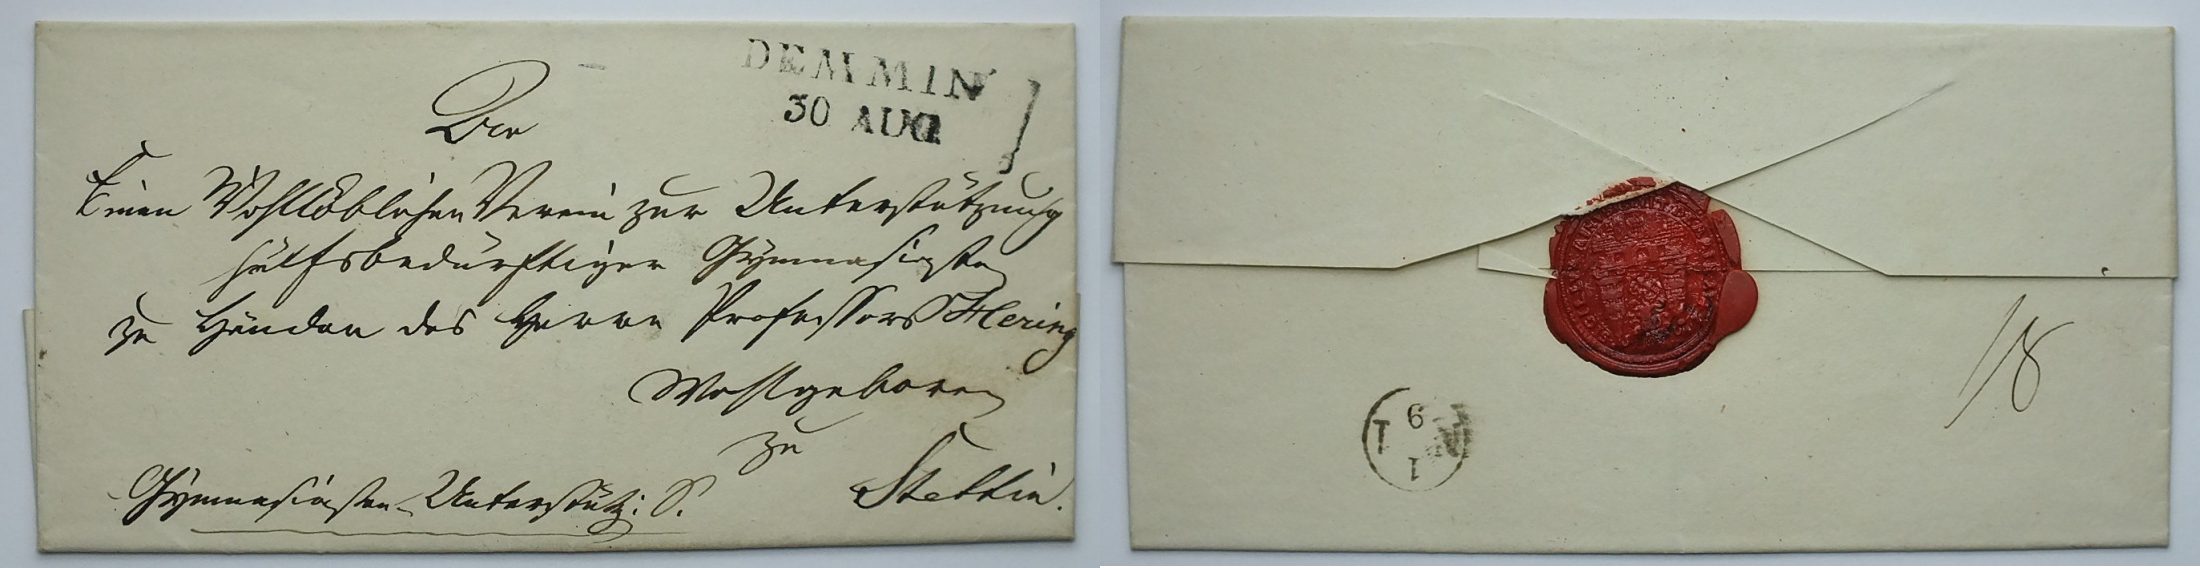 DEMMIN
30 AUG
An
Einen Wohllöblichen Verein zur Unterstützung
hülfsbedürftiger Gymnasiasten
zu Händen des Herrn Professors Hering
Wohlgeboren
zu
Stettin.
Gymnasiasten-Unterstütz: S.
N
1
9
1